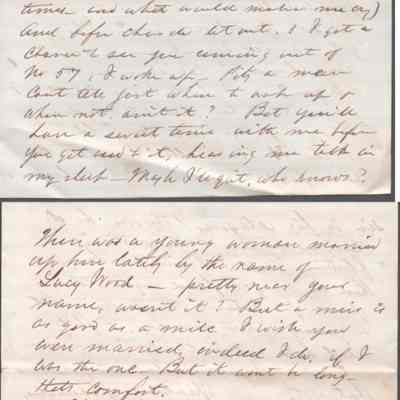 times - and what would make me cry)
And before she do let out. & I got a
chance to see you coming out of
No 57, I woke up. Pity a man
Cant tell just when to wake up &
when not, aint it? But you'll
have a sweet time with me before
you get used to it, hearing me talk in
my sleep - Maybe I'll quit, who knows?
There was a young woman married
up here lately by the name of
Lucy Wood - pretty near your
name, wasn't it? But a miss is
as good as a mile. I wish you
were married, indeed I do, if I
was the one. But it wont be long -
thats comfort.